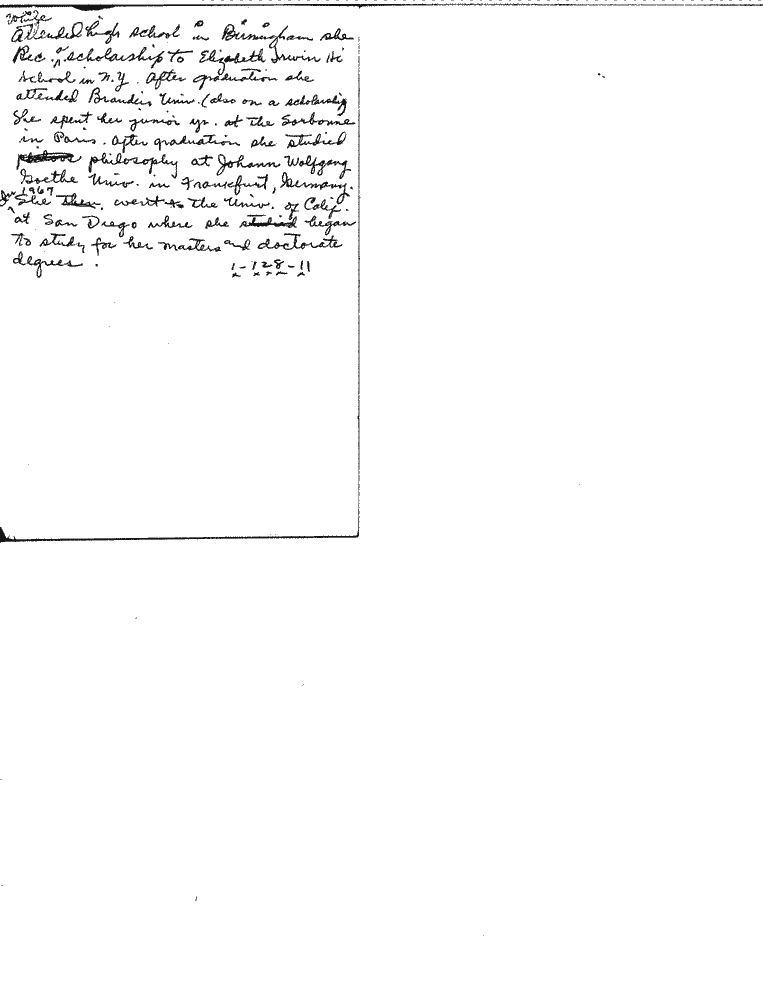 While
attended high school in Birmingham she
Rec. a scholarship to Elizabeth Irwin Hi
School in N.Y. After graduation she
attended Brandeis Univ. (also on a scholarship
She spent her junior yr. at the Sorbonne
in Paris. After graduation she studied
philosophy at Johann Wolfgang
Goethe Univ. in Frankfurt, Germany.
In 1967
She then went to the Univ. of Calif.
at San Diego where she studied began
to study for her masters and doctorate
degrees.
1-128-11